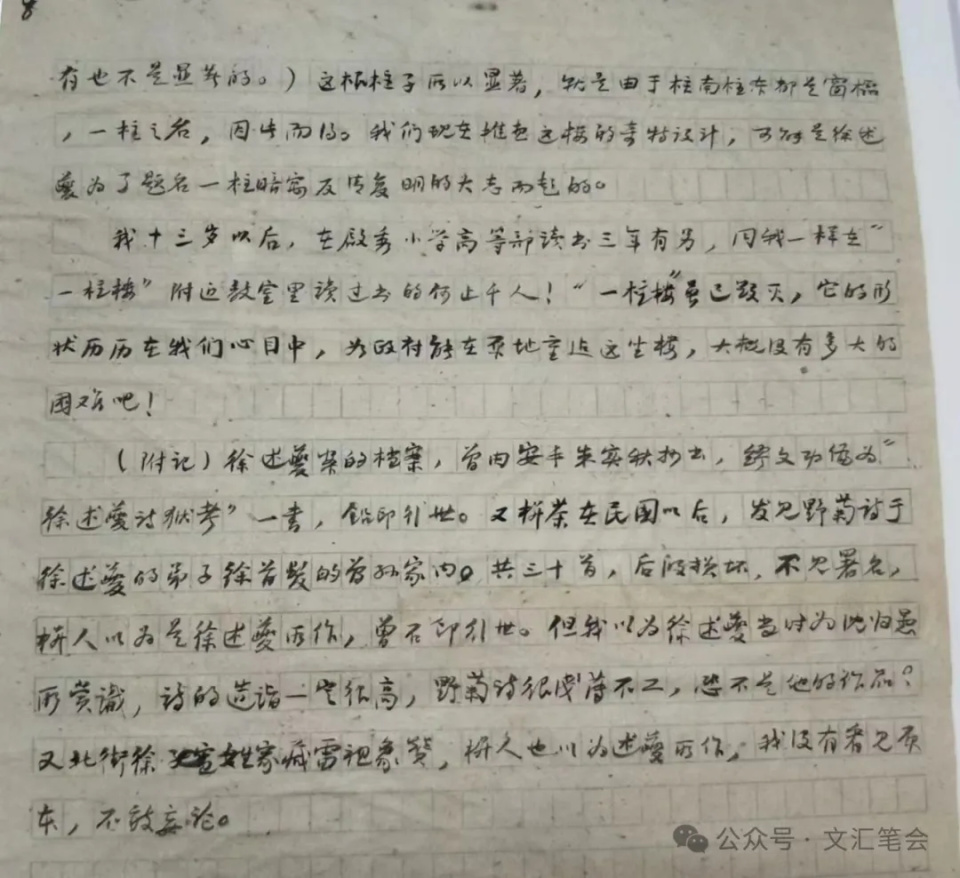 8
有也不是显著的。）这根柱子所以显著，就是由于柱南柱东都是窗槅
，一柱之名，因此而得。我们现在推想这楼的奇特设计，可能是徐述
夔为了题名一柱暗寓反清复明的大志而起的。
我十三岁以后，在启秀小学高等部读书三年有另，同我一样在“
一柱楼”附近教室里读过书的何止千人！“一柱楼”虽已毁灭，它的形
状历历在我们心目中，为政府能在原地重造这坐楼，大概没有多大的
困难吧！
（附记）徐述夔案的档案，曾由安丰朱实秋抄出，
徐述夔诗狱考”一书，铅印行世。又栟茶在民国以后，发见野菊诗于
徐述夔的弟子徐首发的曾孙家内。共三十首，后段损坏，不见署名，
栟人以为是徐述夔所作，曾石印行世。但我以为徐述夔当时为沈归愚
所赏识，诗的造诣一定很高，野菊诗很浅薄不工，恐不是他的作品？
又北街徐 姓家藏雷祖象赞，栟人也以为述夔所作，我没有看见原
本，不敢妄论。
公众号·文汇笔会